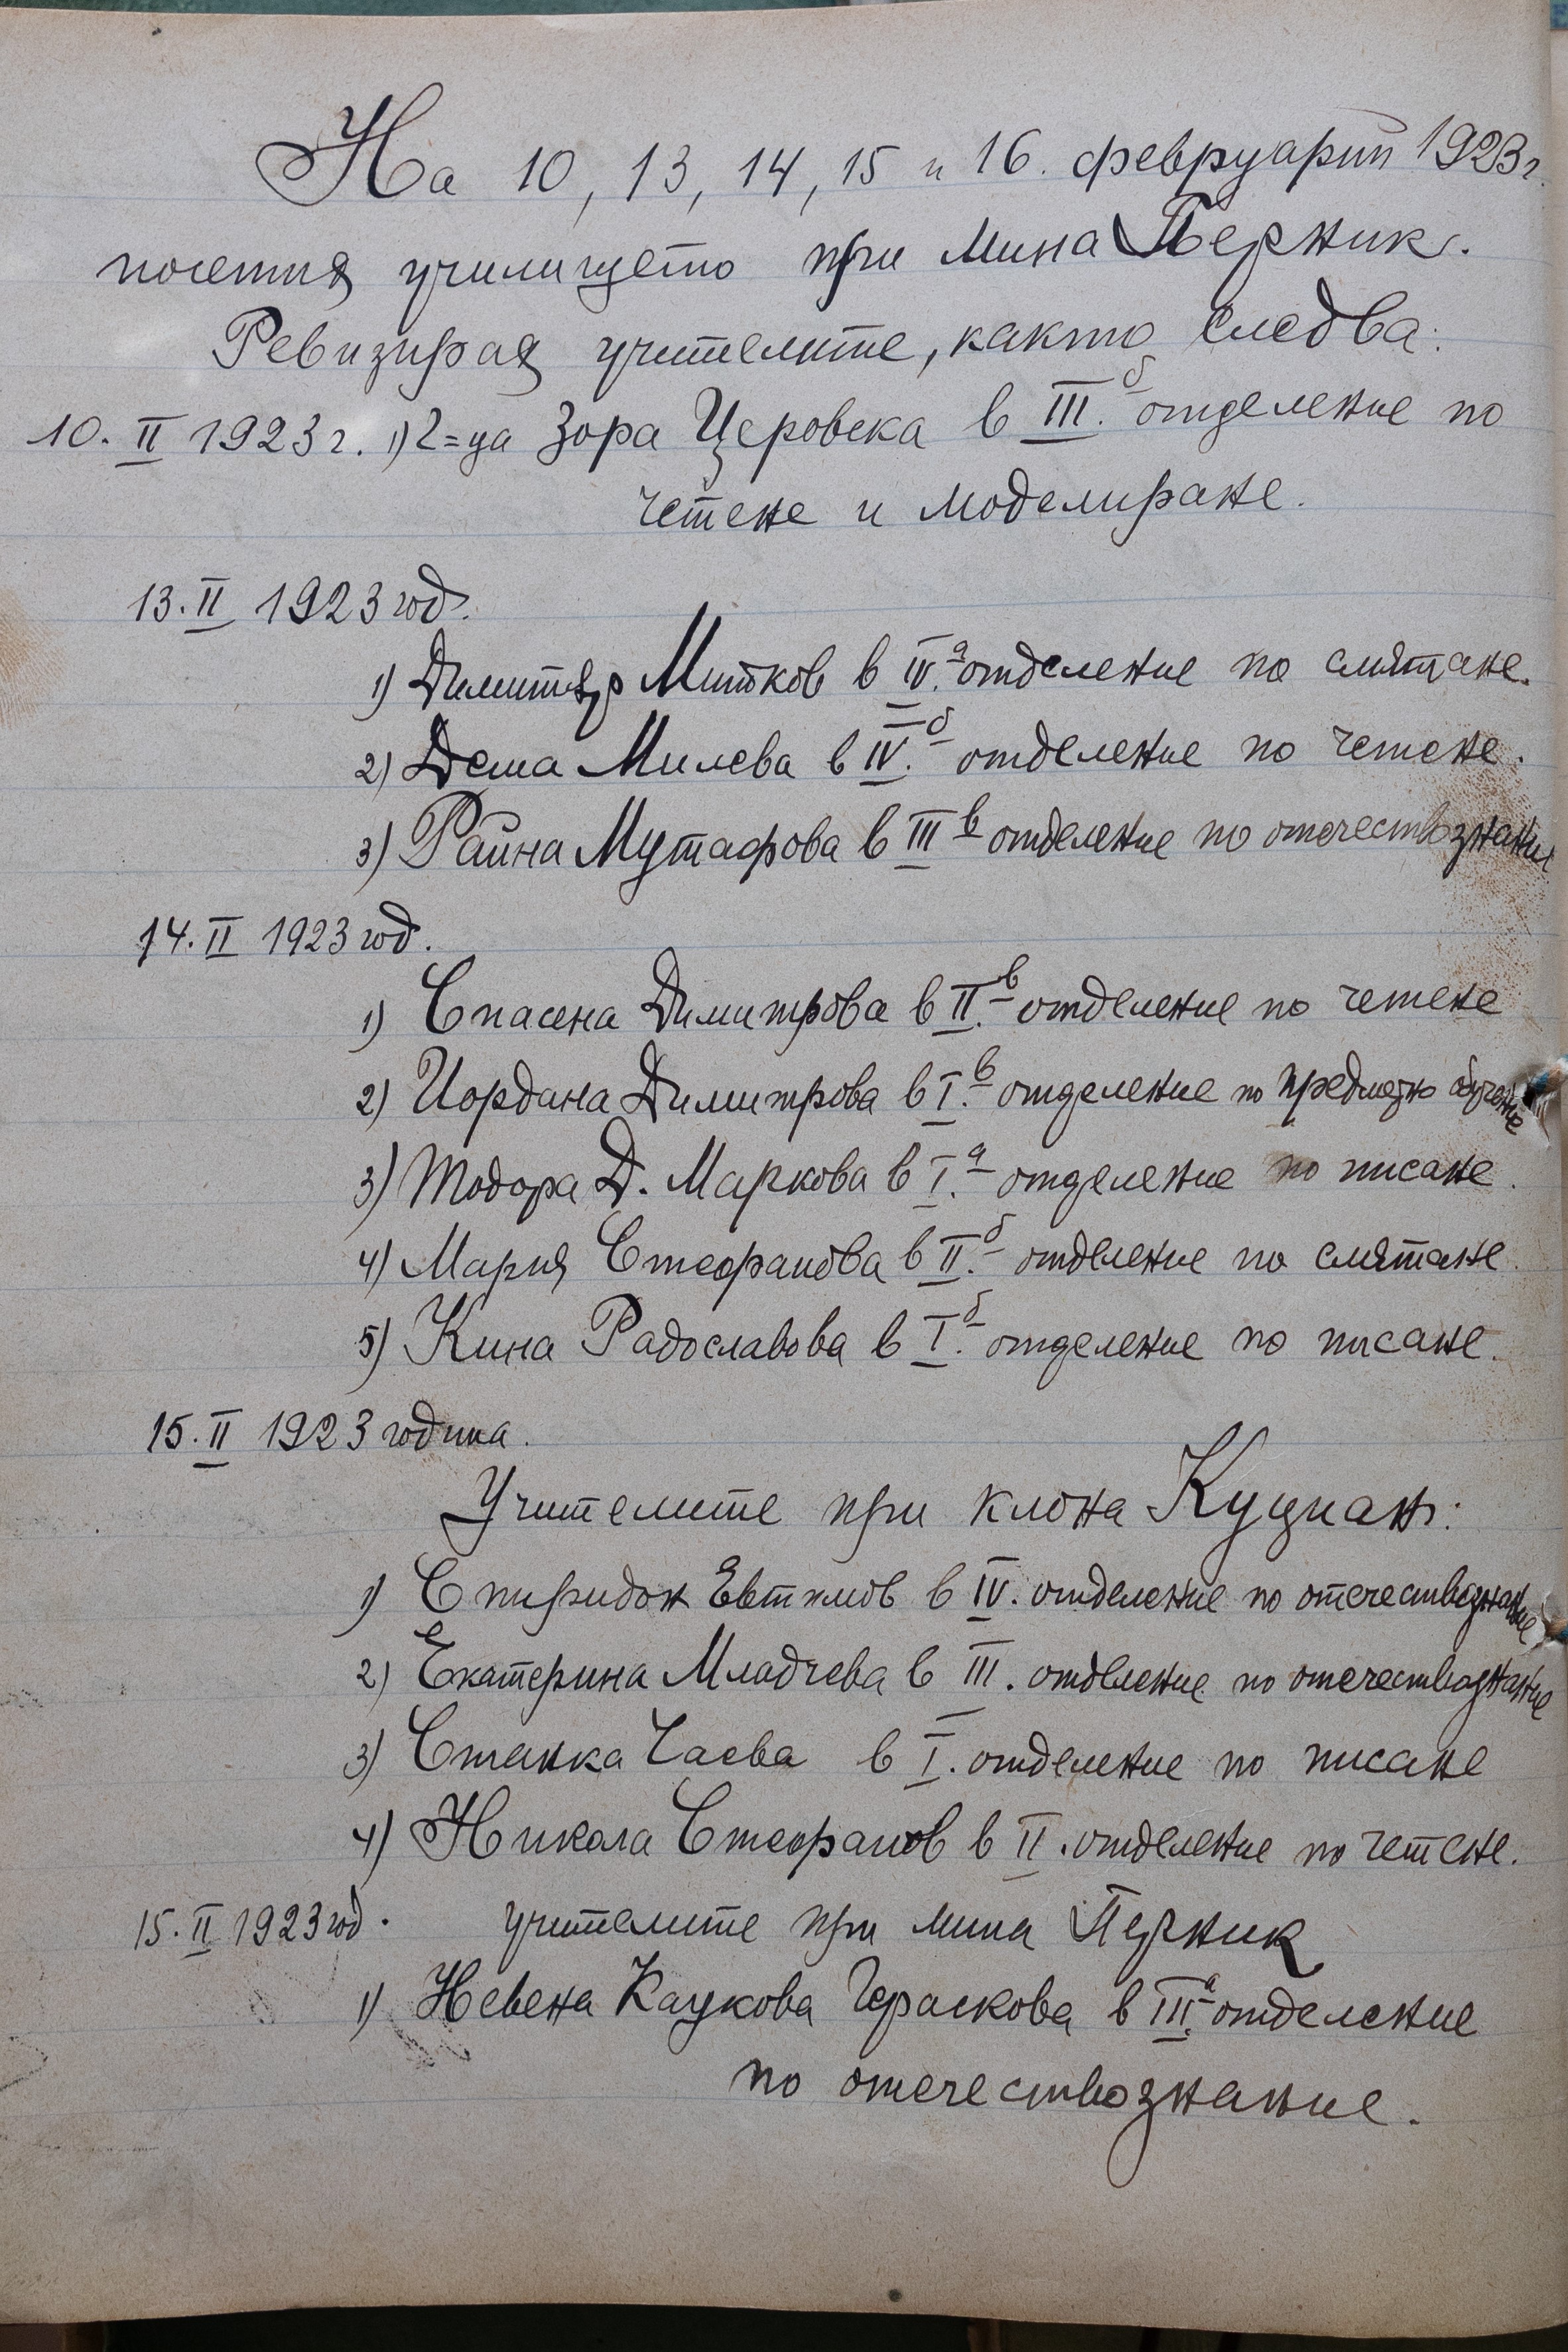 На 10, 13, 14, 15 и 16. февруарий 1923 г.
посетия училището при мина Перник.
Ревизирая учителите, както следва:
10. II 1923 г. 1) Г=ца Зора Церовска в III. б отделение по
четене и моделиране.
13. II 1923 год.
1) Димитър Митков в IV. а отделение по смятане.
2) Деша Милева в IV. б отделение по четене.
3) Райна Мутафова в III в отделение по отечествознание
14. II 1923 год.
1) Спасена Димитрова в II. в отделение по четене
2) Йордана Димитрова в I. в отделение по предметно обучение
3) Тодора Д. Маркова в I. а отделение по писане.
4) Мария Стефанова в II. б отделение по смятане.
5) Кина Радославова в I. б отделение по писане.
15. II 1923 година.
Учителите при клона Куциан:
1) Спиридон Евтимов в IV. отделение по отечествознание
2) Екатерина Младчева в III. отделение по отечествознание
3) Станка Чаева в I. отделение по писане
4) Никола Стефанов в II. отделение по четене.
15. II 1923 год. учителите при мина Перник
1) Невена Каукова Гераскова в III. а отделение
по отечествознание.